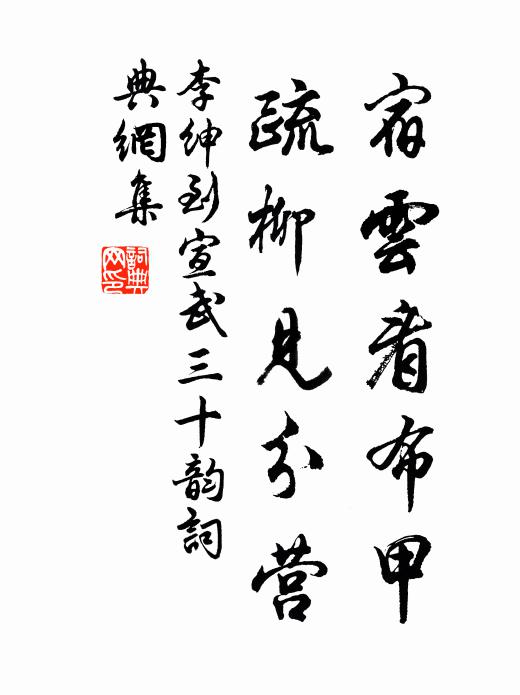 宿雲看布甲
疏柳見分營
李紳到宣武三十韵詞
典網集
詞典网印